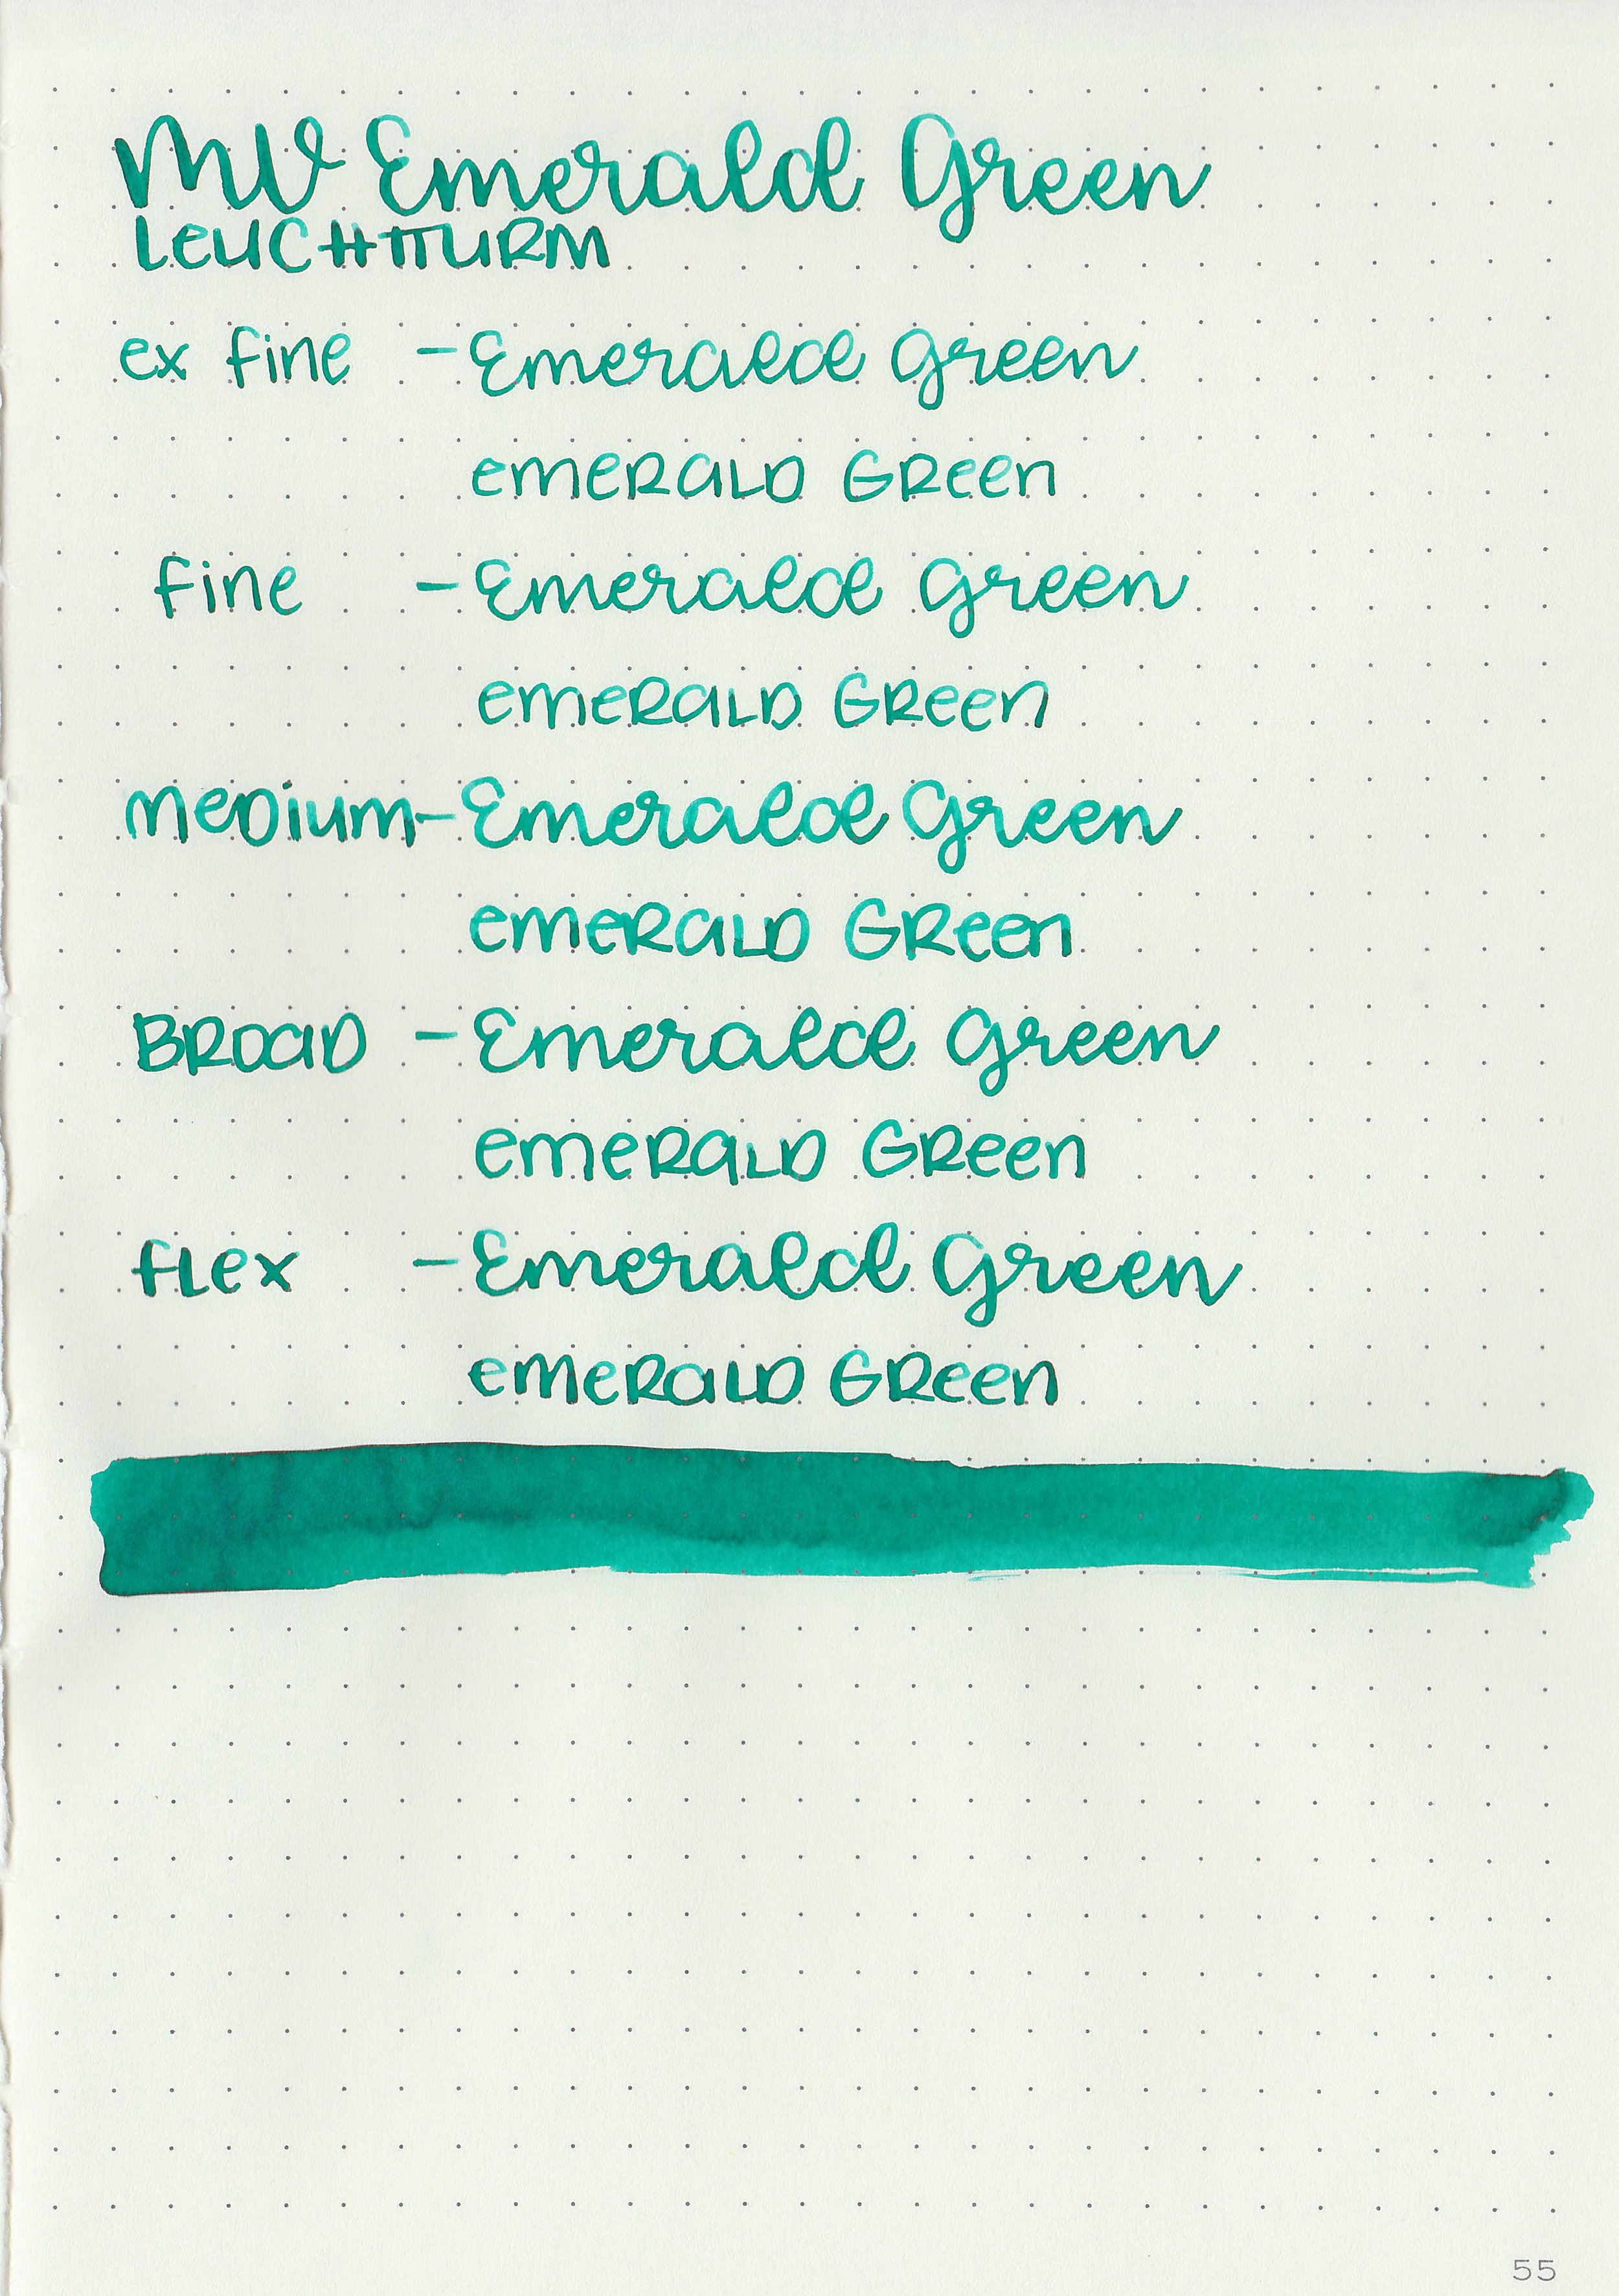 MV Emerald Green
LEUCHTTURM
ex fine - Emerald Green
emeRALD GReen
fine - Emerald Green
emeRALD GReen
meDium - Emerald Green
emeRALD GReen
BROAD - Emerald Green
emeRALD GReen
fLex - Emerald Green
emeRALD GReen
55